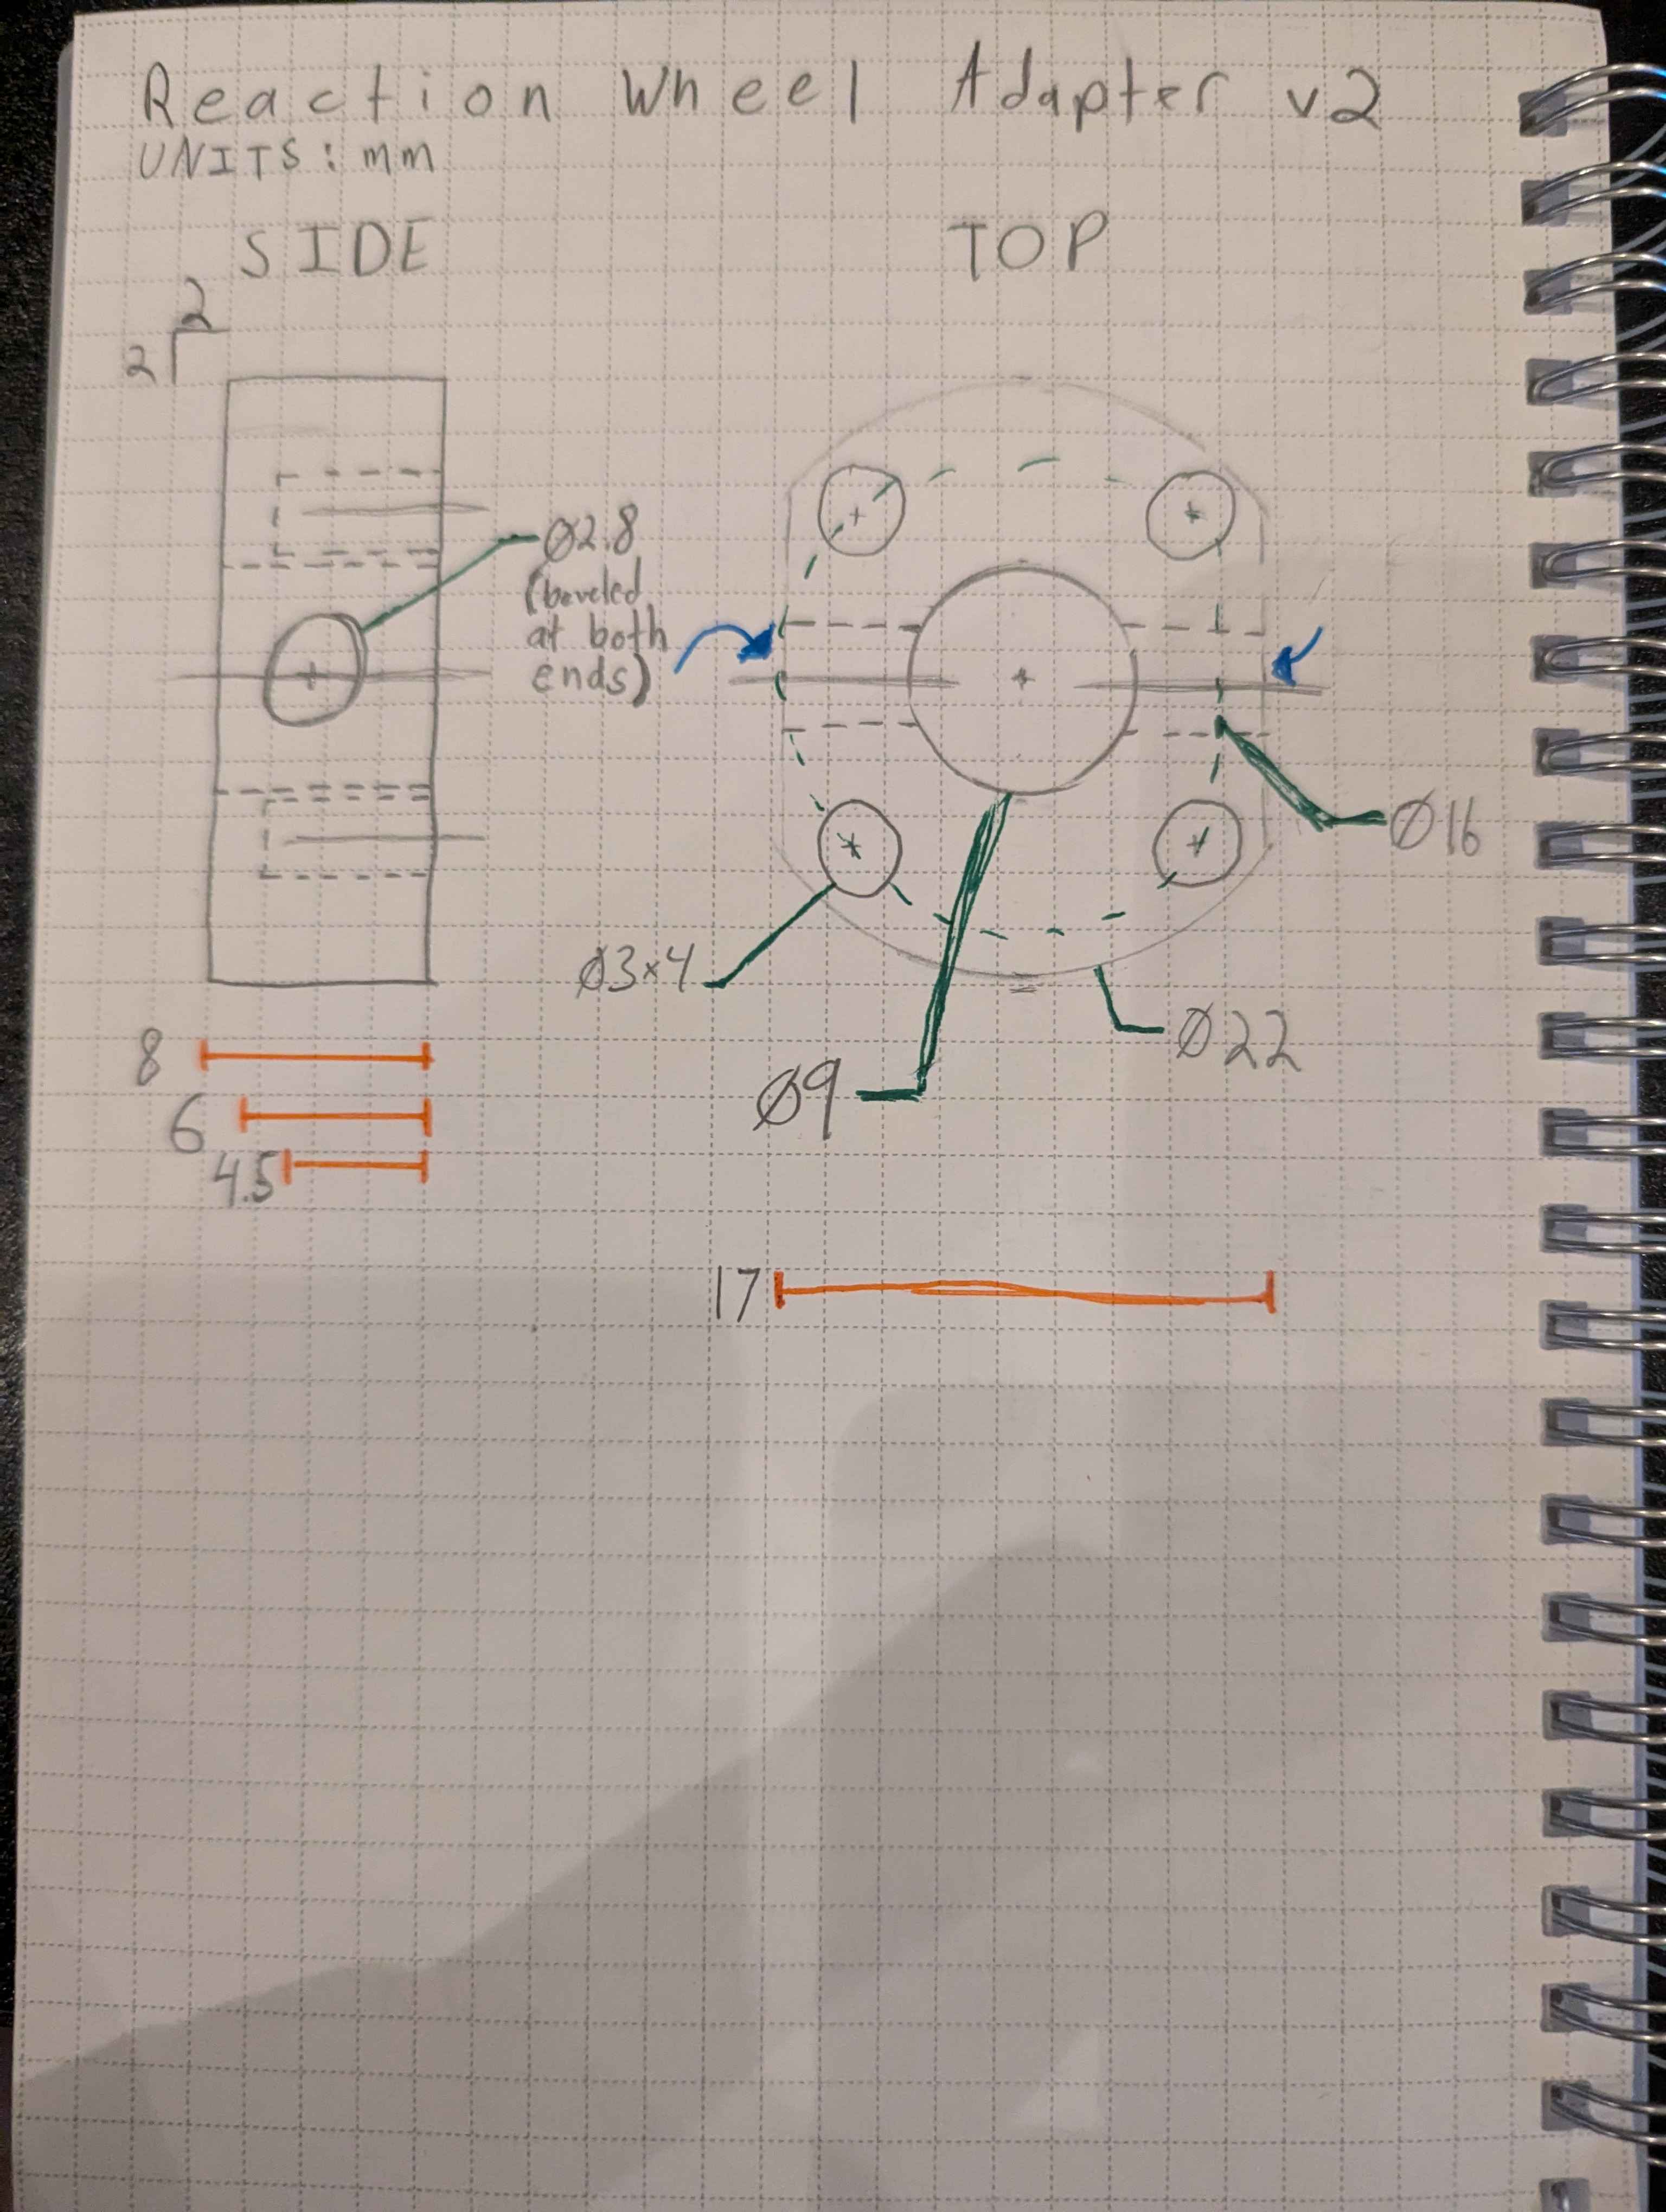 Reaction Wheel Adapter v2
UNITS: mm
SIDE
TOP
2
2
Ø2.8
(beveled
at both
ends)
Ø16
Ø3×4
Ø22
Ø9
8
6
4.5
17